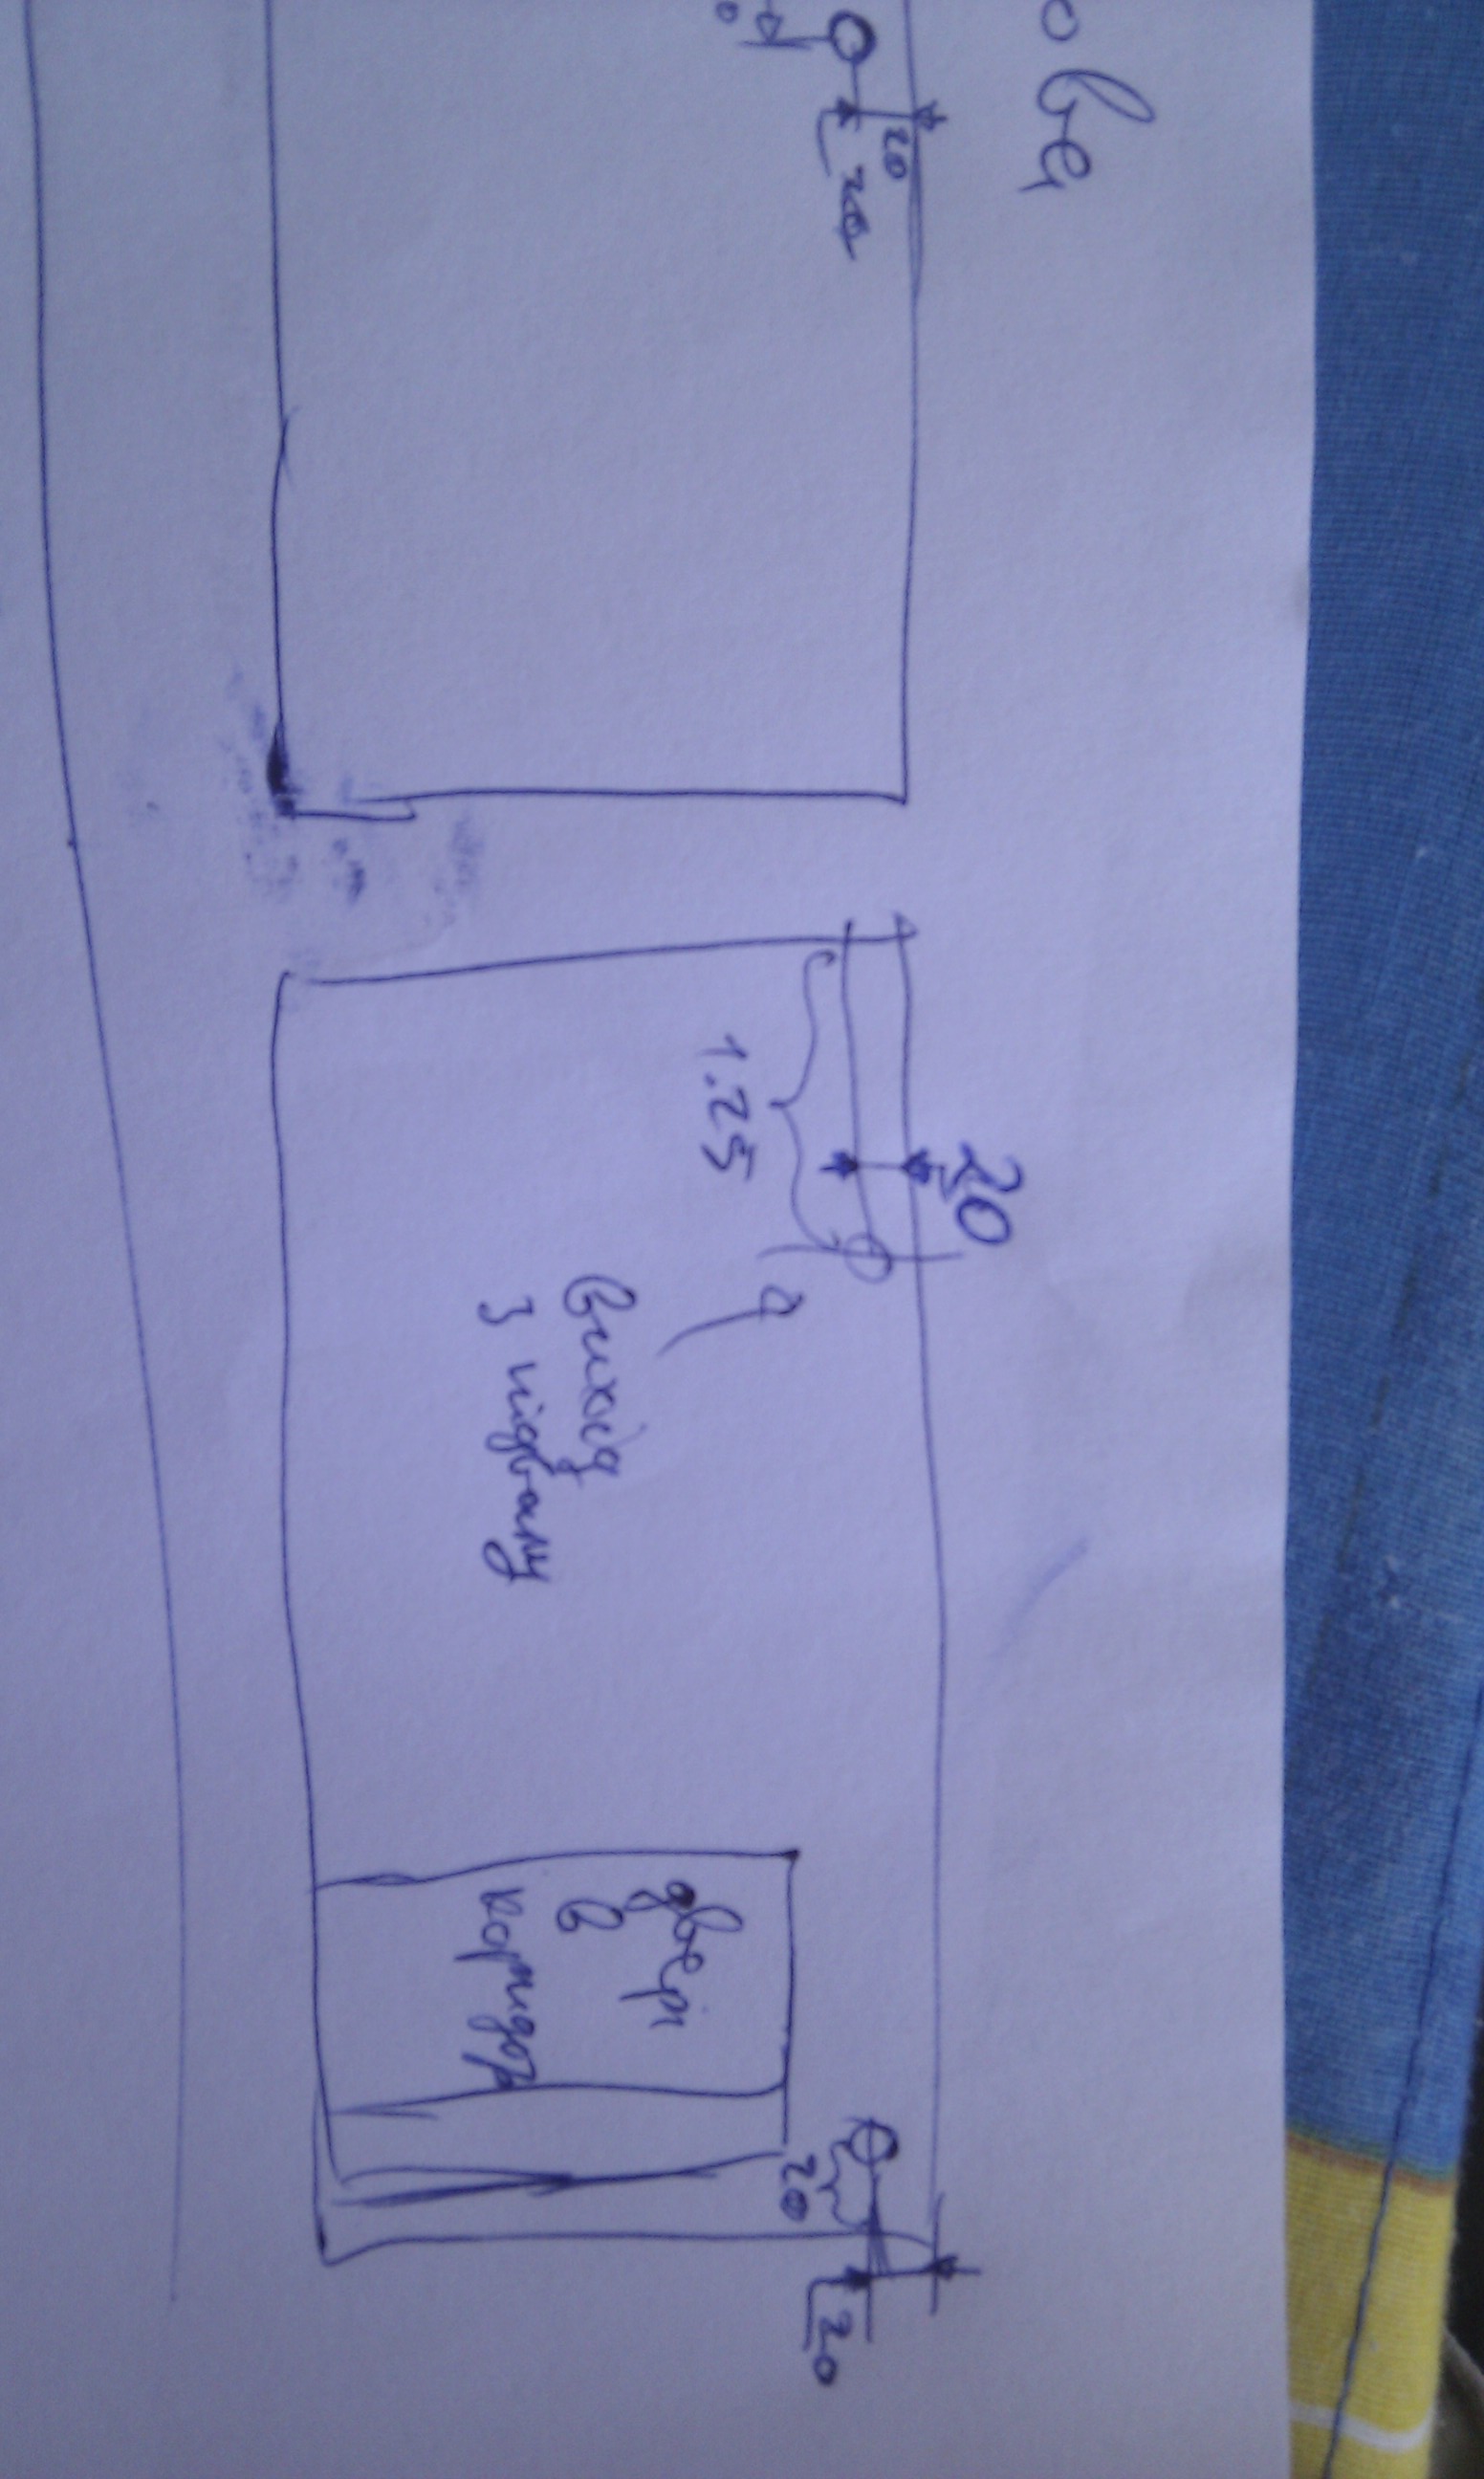 ове
20
20
20
1.25
вихід
з підвалу
двері
в
коридор
20
20